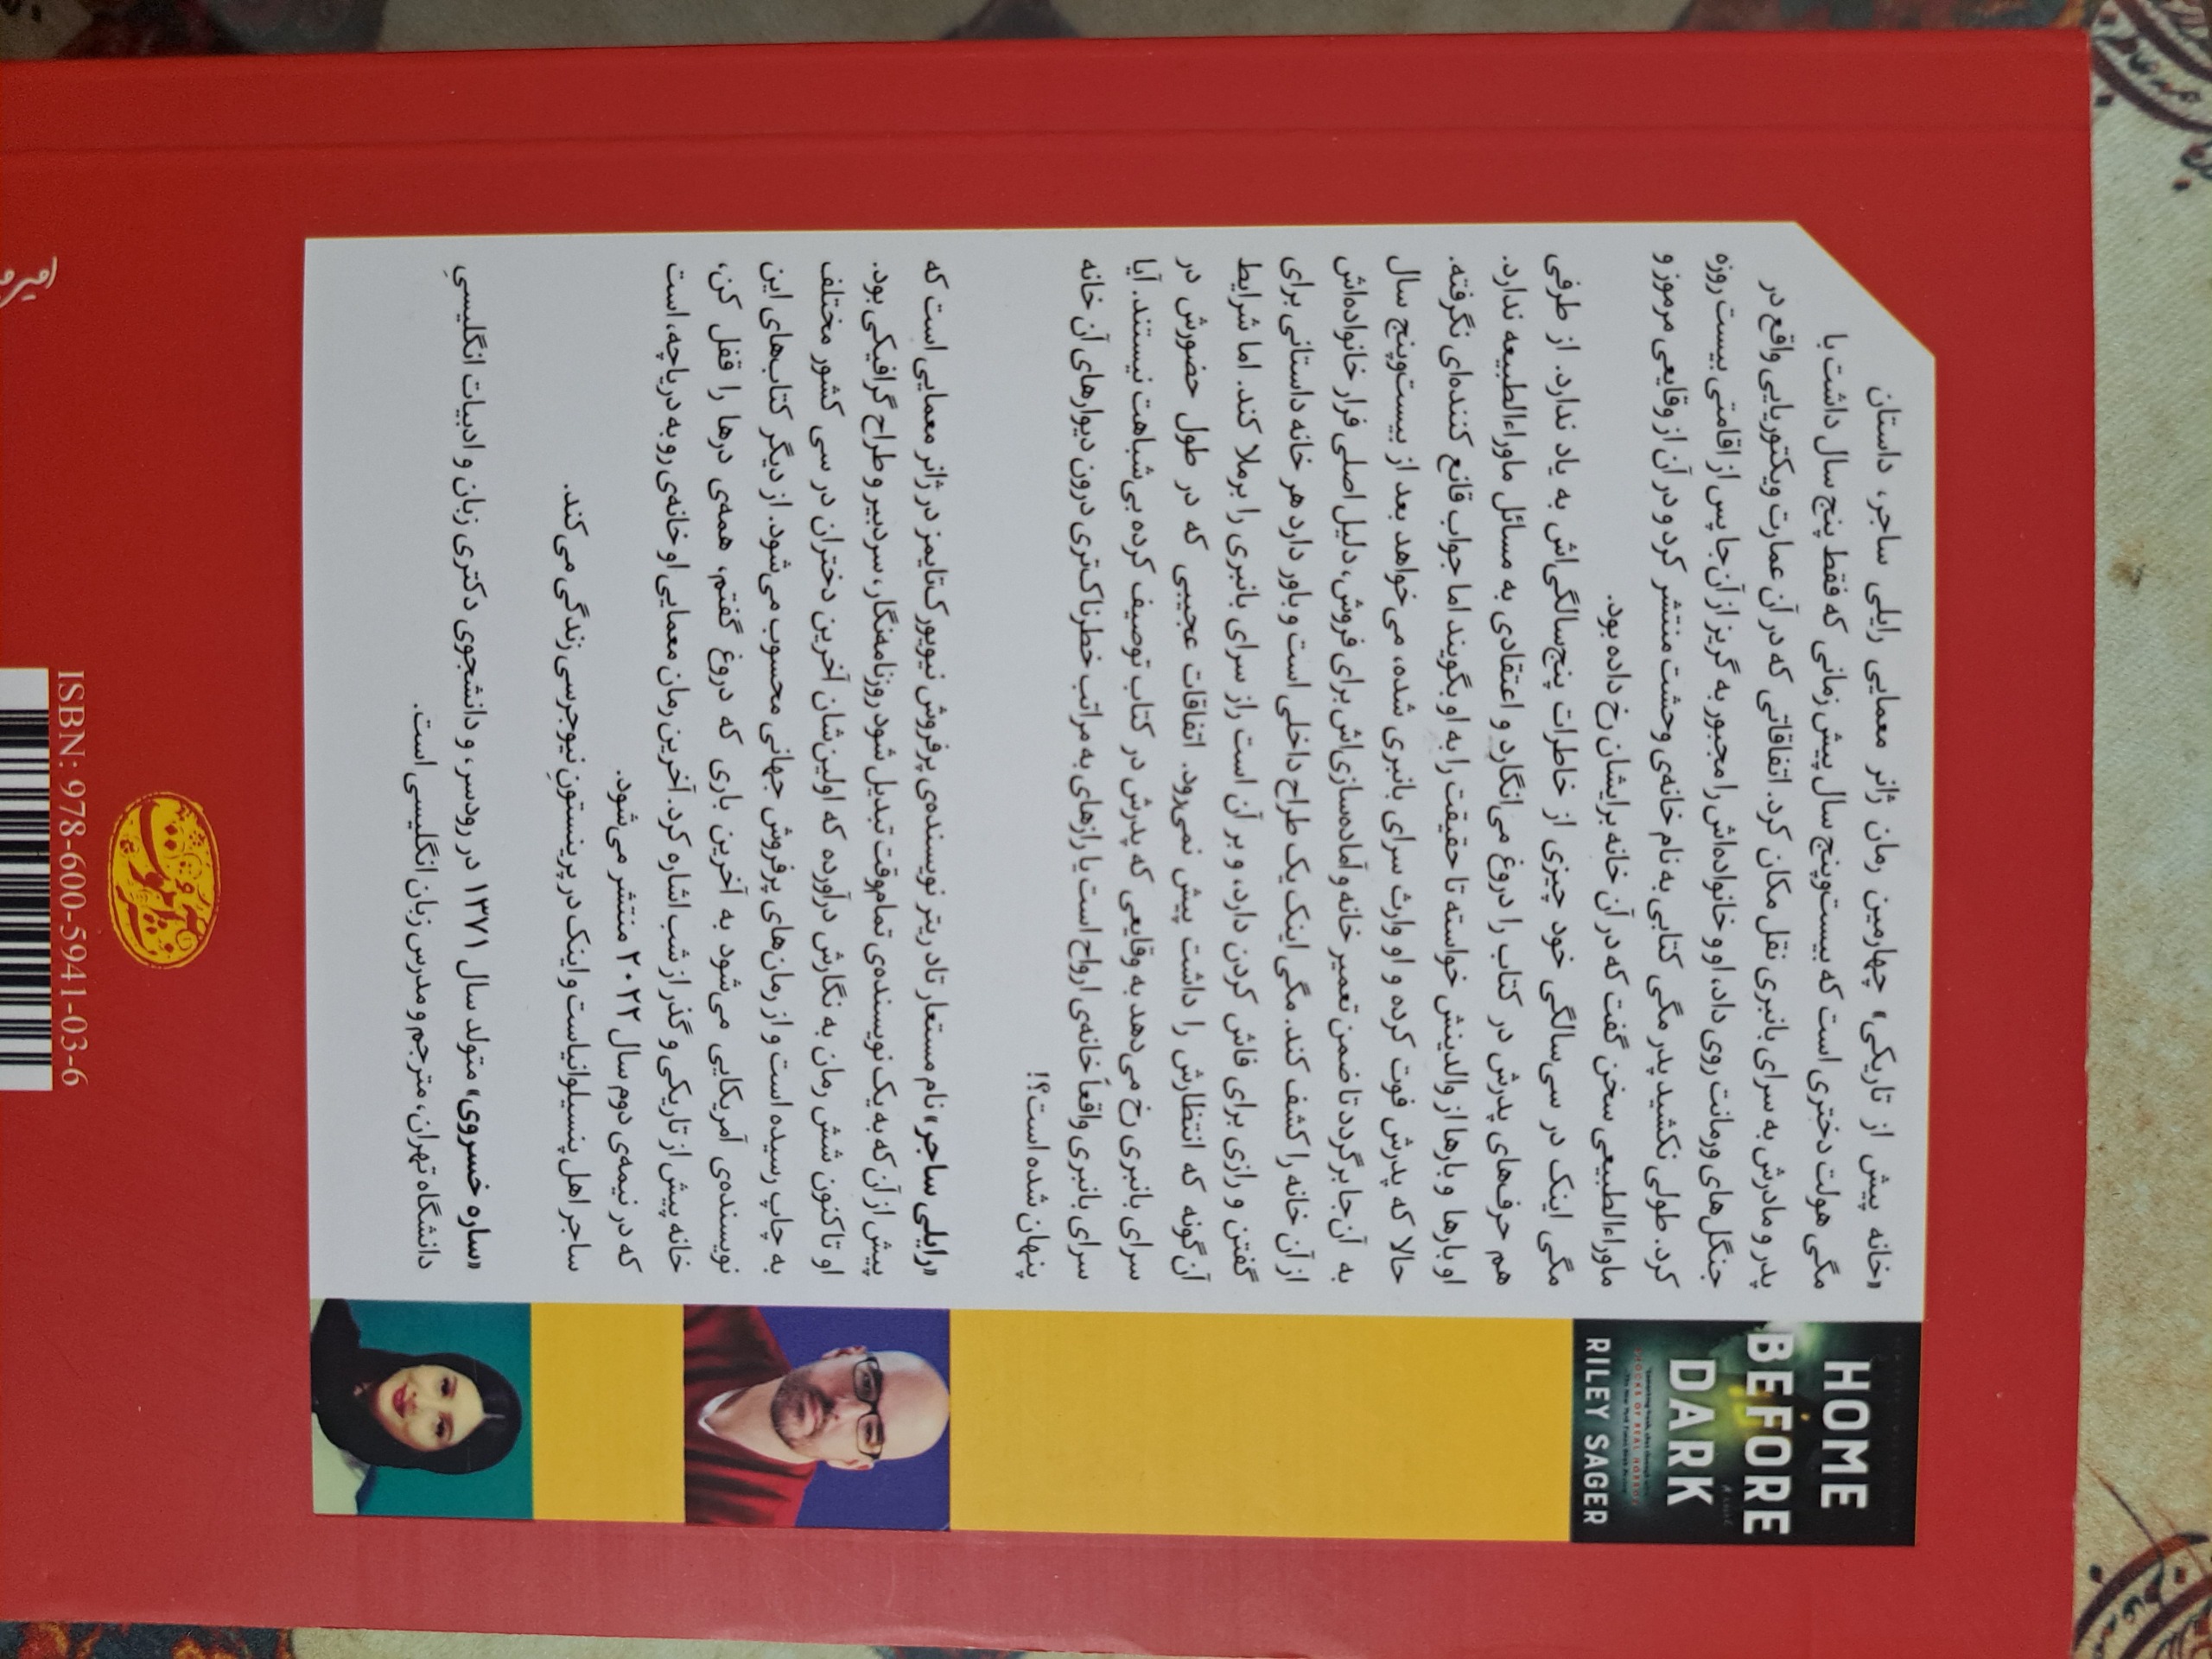 «خانه پیش از تاریکی» چهارمین رمان ژانر معمایی رایلی ساجر، داستان
مگی هولت دختری است که بیست‌وپنج سال پیش زمانی که فقط پنج سال داشت با
پدر و مادرش به سرای بانبری نقل مکان کرد. اتفاقاتی که در آن عمارت ویکتوریایی واقع در
جنگل‌های ورمانت روی داد، او و خانواده‌اش را مجبور به گریز از آن‌جا پس از اقامتی بیست روزه
کرد. طولی نکشید پدر مگی کتابی به نام خانه‌ی وحشت منتشر کرد و در آن از وقایعی مرموز و
ماوراءالطبیعی سخن گفت که در آن خانه برایشان رخ داده بود.
مگی اینک در سی‌سالگی خود چیزی از خاطرات پنج‌سالگی‌اش به یاد ندارد. از طرفی
هم حرف‌های پدرش در کتاب را دروغ می‌انگارد و اعتقادی به مسائل ماوراءالطبیعه ندارد.
او بارها و بارها از والدینش خواسته تا حقیقت را به او بگویند اما جواب قانع کننده‌ای نگرفته.
حالا که پدرش فوت کرده و او وارث سرای بانبری شده، می‌خواهد بعد از بیست‌وپنج سال
به آن‌جا برگردد تا ضمن تعمیر خانه و آماده‌سازی‌اش برای فروش، دلیل اصلی فرار خانواده‌اش
از آن خانه را کشف کند. مگی اینک یک طراح داخلی است و باور دارد هر خانه داستانی برای
گفتن و رازی برای فاش کردن دارد، و بر آن است راز سرای بانبری را برملا کند. اما شرایط
آن‌گونه که انتظارش را داشت پیش نمی‌رود. اتفاقات عجیبی که در طول حضورش در
سرای بانبری رخ می‌دهد به وقایعی که پدرش در کتاب توصیف کرده بی‌شباهت نیستند. آیا
سرای بانبری واقعاً خانه‌ی ارواح است یا رازهای به مراتب خطرناک‌تری درون دیوارهای آن خانه
پنهان شده است؟!
«رایلی ساجر» نام مستعار تاد ریتر نویسنده‌ی پرفروش نیویورک‌تایمز در ژانر معمایی است که
پیش از آن‌که به یک نویسنده‌ی تمام‌وقت تبدیل شود روزنامه‌نگار، سردبیر و طراح گرافیکی بود.
او تاکنون شش رمان به نگارش درآورده که اولین‌شان آخرین دختران در سی کشور مختلف
به چاپ رسیده است و از رمان‌های پرفروش جهانی محسوب می‌شود. از دیگر کتاب‌های این
نویسنده‌ی آمریکایی می‌شود به آخرین باری که دروغ گفتم، همه‌ی درها را قفل کن،
خانه پیش از تاریکی و گذر از شب اشاره کرد. آخرین رمان معمایی او خانه‌ی رو به دریاچه، است
که در نیمه‌ی دوم سال ۲۰۲۲ منتشر می‌شود.
ساجر اهل پنسیلوانیاست و اینک در پرینستونِ نیوجرسی زندگی می‌کند.
«ساره خسروی» متولد سال ۱۳۷۱ در رودسر، و دانشجوی دکتری زبان و ادبیات انگلیسیِ
دانشگاه تهران، مترجم و مدرس زبان انگلیسی است.
HOME
BEFORE
DARK
RILEY SAGER
ISBN: 978-600-5941-03-6